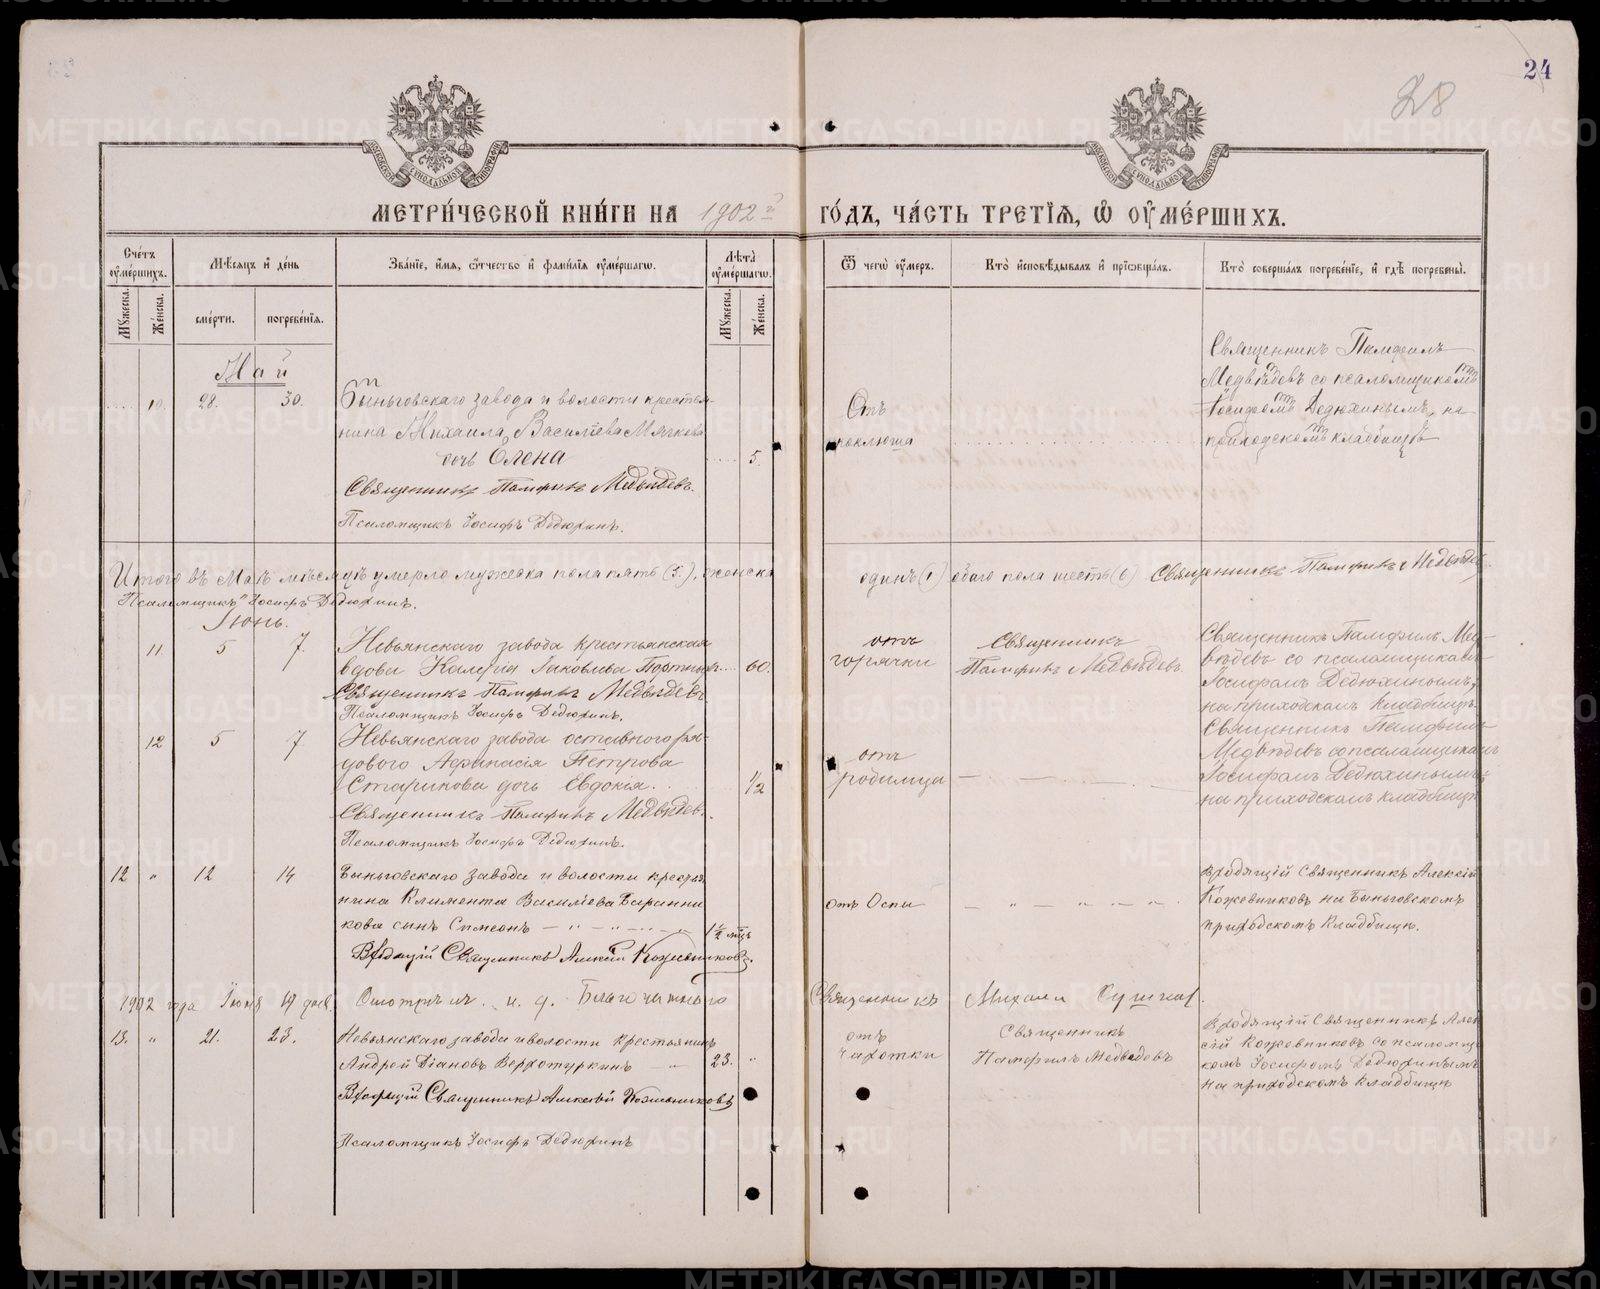 24
28
МОСКОВСКОЙ СѴНОДАЛЬНОЙ ТИПОГРАФІИ
МОСКОВСКОЙ СѴНОДАЛЬНОЙ ТИПОГРАФІИ
МЕТРИ́ЧЕСКОЙ КНИ́ГИ НА 1902 й ГО́ДЪ, ЧА́СТЬ ТРЕТІЯ, Ѡ ОУМЕ́РШИХЪ.
Сче́тъ оуме́ршихъ.
Мѣсяцъ и де́нь
Зва́ніе, и́мя, ѻ҆́тчество и фами́лія оуме́ршагѡ.
Лѣта̀ оуме́ршагѡ.
Ѿ чегѡ̀ оу́меръ.
Кто̀ исповѣ́дывалъ и прїѡбща́лъ.
Кто̀ соверша́лъ погребе́ніе, и гдѣ̀ погребены̀.
Мꙋ́жеска.
Же́нска.
сме́рти.
погребе́нїя.
Мꙋ́жеска.
Же́нска.
Май
10. 28. 30.
Быньговскаго завода и волости крестья-
нина Михаила Васильева Мягкова
дочь Олена
5.
Священникъ Памфилъ Медвѣдевъ.
Псаломщикъ Іосифъ Дедюхинъ.
Отъ
коклюша
Священникъ Памфилъ
Медвѣдевъ со псаломщикомъ
Іосифомъ Дедюхинымъ, на
приходскомъ кладбищѣ
Итого въ Маѣ мѣсяцѣ умерло мужеска пола пять (5.), женска один (1) обоего пола шесть (6) Священникъ Памфилъ Медвѣдевъ
Псаломщикъ Іосифъ Дедюхинъ.
Іюнь.
11 5 7.
Невьянскаго завода крестьянская
вдова Калерія Яковлева
60.
Священникъ Памфилъ Медвѣдевъ
Псаломщикъ Іосифъ Дедюхинъ.
отъ
горячки
Священник
Памфилъ Медвѣдевъ
Священник Памфилъ Мед-
вѣдевъ со псаломщикомъ
Іосифомъ Дедюхинымъ,
на приходскомъ кладбищѣ.
12 5 7.
Невьянскаго завода отставного ря-
дового Афанасія Петрова
Старикова дочь Евдокія.
1/2
Священникъ Памфилъ Медвѣдев.
Псаломщикъ Іосифъ Дедюхинъ.
отъ
родимца
Священникъ Памфилъ
Медвѣдевъ со псаломщикомъ
Іосифомъ Дедюхинымъ,
на приходскомъ кладбищѣ
12 " 12 14
Быньговскаго завода и волости крестья-
нина Климента Васильева Баранни
кова сынъ Симеонъ
1 1/2 мѣс
Входящій Священникъ Алексій Кожевниковъ.
отъ Оспы
Входящій Священникъ Алексій
Кожевниковъ на Быньговскомъ
приходскомъ кладбищѣ.
1902 года Іюня 19 дня. Смотрѣлъ. и. д. Благочиннаго Священникъ Михаил
13. " 21. 23.
Невьянскаго завода и волости крестьянинъ
Андрей Діановъ Верхотуркинъ
23. "
Входящій Священникъ Алексій Кожевниковъ
Псаломщикъ Іосифъ Дедюхинъ
отъ
чахотки
Священник
Памфилъ Медведевъ
Входящій Священникъ Алек
сій Кожевниковъ со псаломщи
комъ Іосифомъ Дедюхинымъ
на приходскомъ кладбищѣ
METRIKI.GASO-URAL.RU